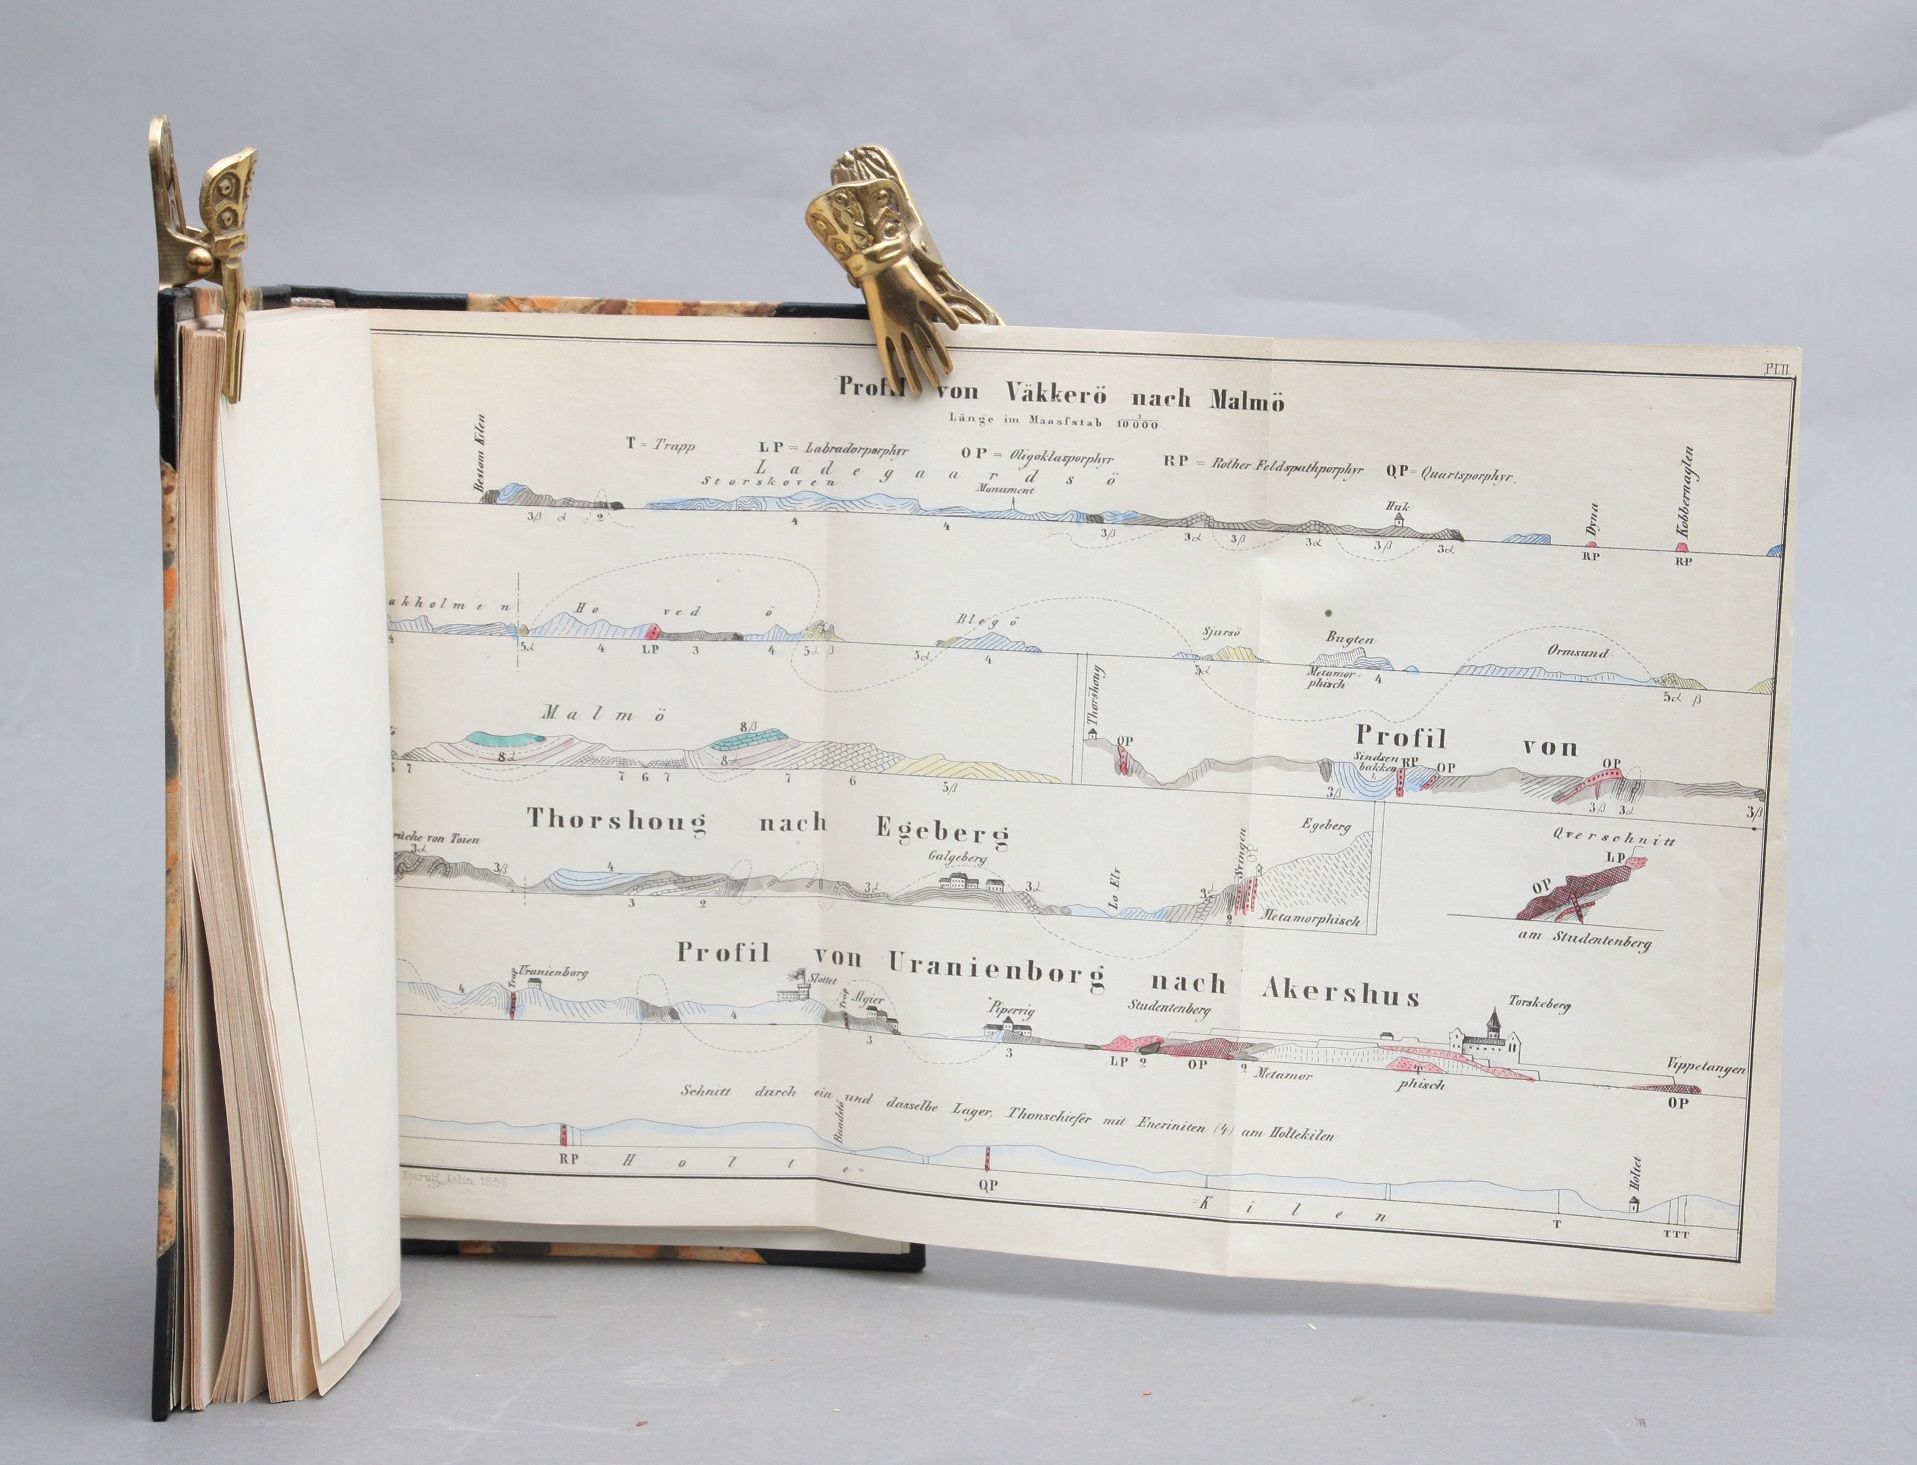 Pl.II
Profil von Väkkerö nach Malmö
Länge im Maasfstab 1/10000.
T = Trapp LP = Labradorporphyr OP = Oligoklasporphyr RP = Rother Feldspathporphyr QP = Quartsporphyr.
Bestom Kilen Storskoven Ladegaardsö Monument Huk Dyna Kobbernaglen
3β α 2 4 4 3β 3α 3β 3α 3β 3α RP RP
akholmen Hovedö Blegö Sjursö Bugten Ormsund
4 5α 4 LP 3 4 5α β 5α 4 5α Metamorphisch 4 5α β
Malmö Thorshoug OP Profil von
8α 8β 8α Sindsenbakken RP OP OP
7 7 6 7 7 6 5β 3β 3β 3α 3β
Thorshoug nach Egeberg
rüche von Toien Galgeberg Lo Elv Svringen OP Egeberg Qverschnitt
3α 3β 4 3 2 3α 3α 3α 2 Metamorphisch LP OP
am Studentenberg
Profil von Uranienborg nach Akershus
4 Trap Uranienborg 4 Slottet Trap Algier 3 Pipervig 3 Studentenberg Torskeberg Vippetangen
LP 2 OP 2 Metamorphisch T OP
Schnitt durch ein und dasselbe Lager, Thonschiefer mit Encriniten (4) am Holtekilen
Baadstö Holtet
RP Holte= QP =Kilen T TTT
Kjerulf delin 1856